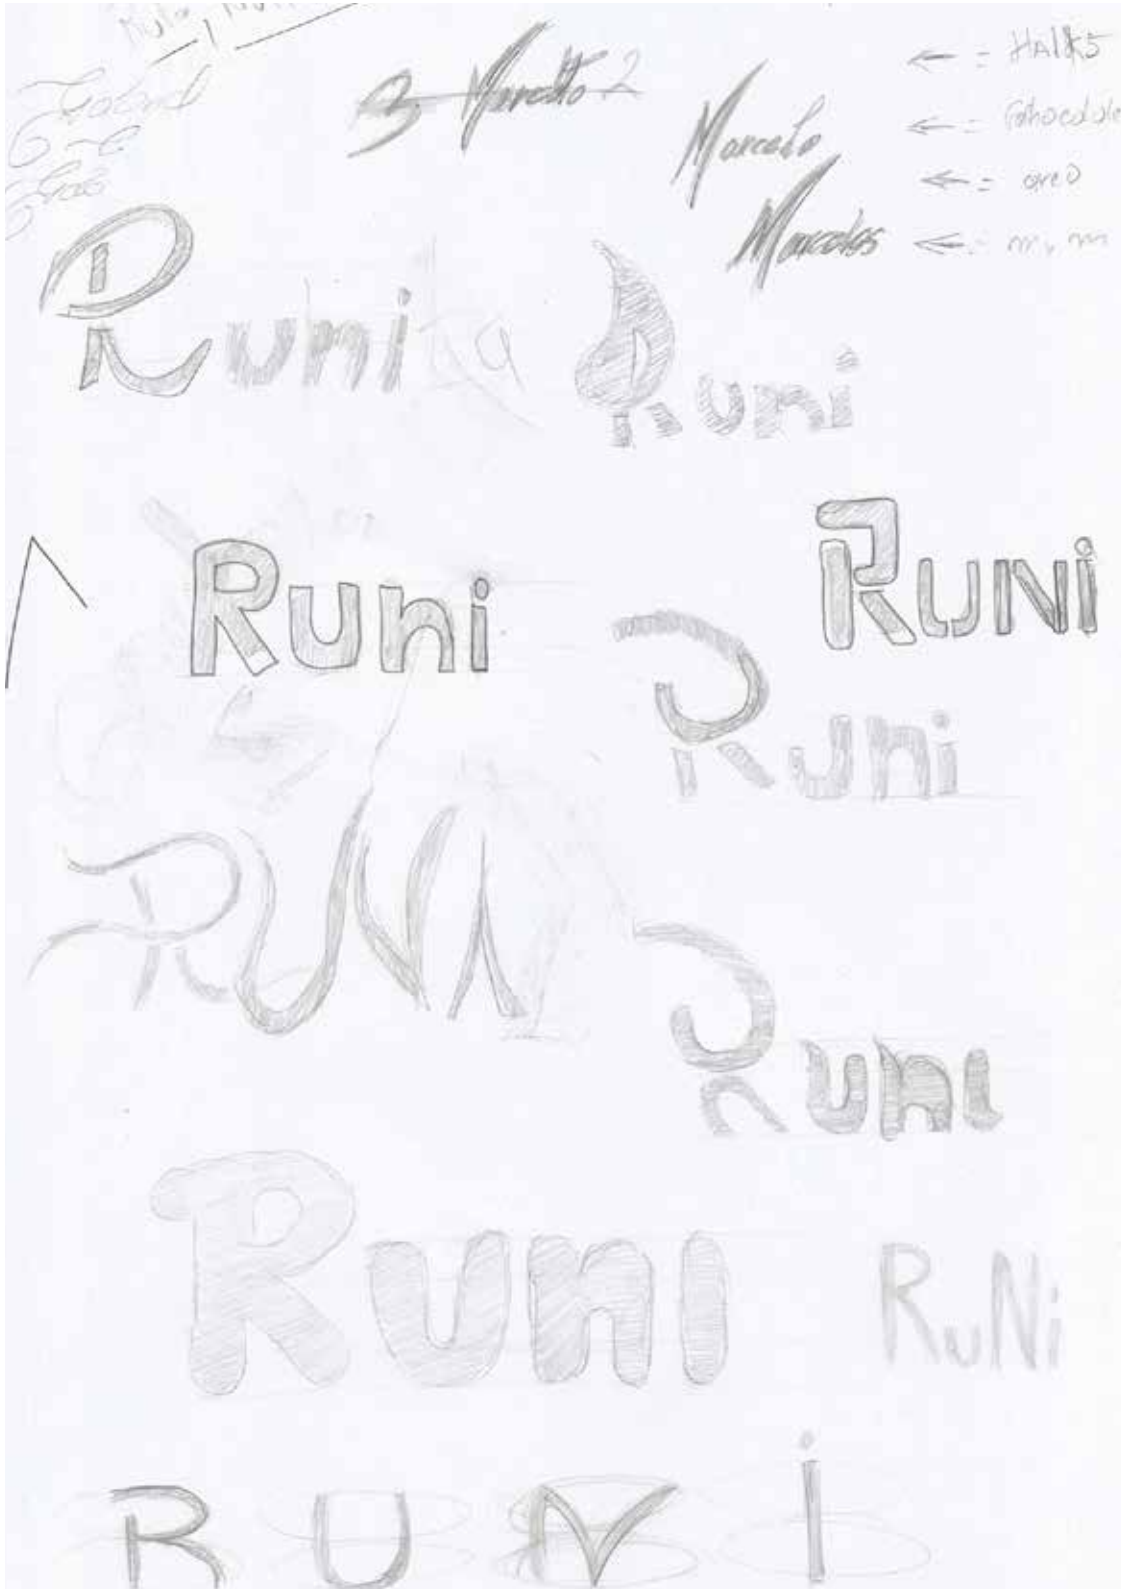 Marcello
Marcelo
Marcelos
HAlk5
oreo
m, m
Runi
Runi
Runi
RUNi
Runi
RUNI
Runi
Runi
RuNi
RUNi